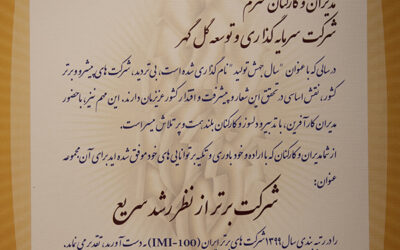 مدیران و کارکنان محترم
شرکت سرمایه گذاری و توسعه گل گهر
در سالی که با عنوان "سال جهش تولید" نام گذاری شده است، بی تردید، شرکت های پیشرو و برتر
کشور، نقش اساسی در تحقق این شعار و پیشرفت و اقتدار کشور عزیزمان دارند. این مهم نیز با حضور
مدیران کارآفرین، با تدبیر و دلسوز و کارکنان بلند همت و پر تلاش میسر است.
از شما مدیران و کارکنان که با اراده و خود باوری و تکیه بر توانایی های خود موفق شده اید برای آن مجموعه
عنوان:
شرکت برتر از نظر رشد سریع
را در رتبه بندی سال ۱۳۹۹ شرکت های برتر ایران (IMI-100) به دست آورید، تقدیر می نماید.